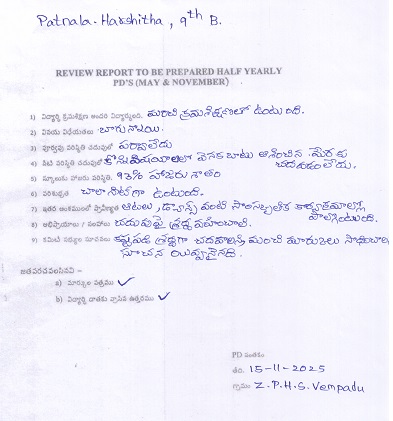 Patnala. Harshitha, 9th B.
REVIEW REPORT TO BE PREPARED HALF YEARLY
PD'S (MAY & NOVEMBER)
1) విద్యార్థి క్రమశిక్షణ అందరి విద్యార్థులలో మంచి క్రమశిక్షణలో ఉంటుంది.
2) వినయ విధేయతలు బాగున్నాయి.
3) పూర్వపు పరిస్థితి చదువులో పర్వాలేదు
4) నేటి పరిస్థితి చదువులో కొన్ని విషయాలలో వెనకబాటు ఆశించిన మేరకు
చదవడంలేదు
5) స్కూలుకు హాజరు పరిస్థితి. 93% హాజరు శాతం
6) పరిశుభ్రత చాలా నీట్‌గా ఉంటుంది.
7) ఇతర అంశములలో ప్రావీణ్యత ఆటలు, డ్యాన్స్ వంటి సాంస్కృతిక కార్యక్రమాల్లో
పాల్గొంటుంది.
8) అభిప్రాయాలు / సలహాలు చదువుపై శ్రద్ధ వహించాలి.
9) కమిటీ సభ్యుల సూచనలు శ్రద్ధగా చదవాలని మంచి మార్కులు సాధించాలి
సూచన యివ్వనైనది.
జతపరచవలసినవి –
a) మార్కుల పత్రము ✓
b) విద్యార్థి దాతకు వ్రాసిన ఉత్తరము ✓
PD సంతకం
తేది. 15-11-2025
గ్రామం Z.P.H.S. Vempadu